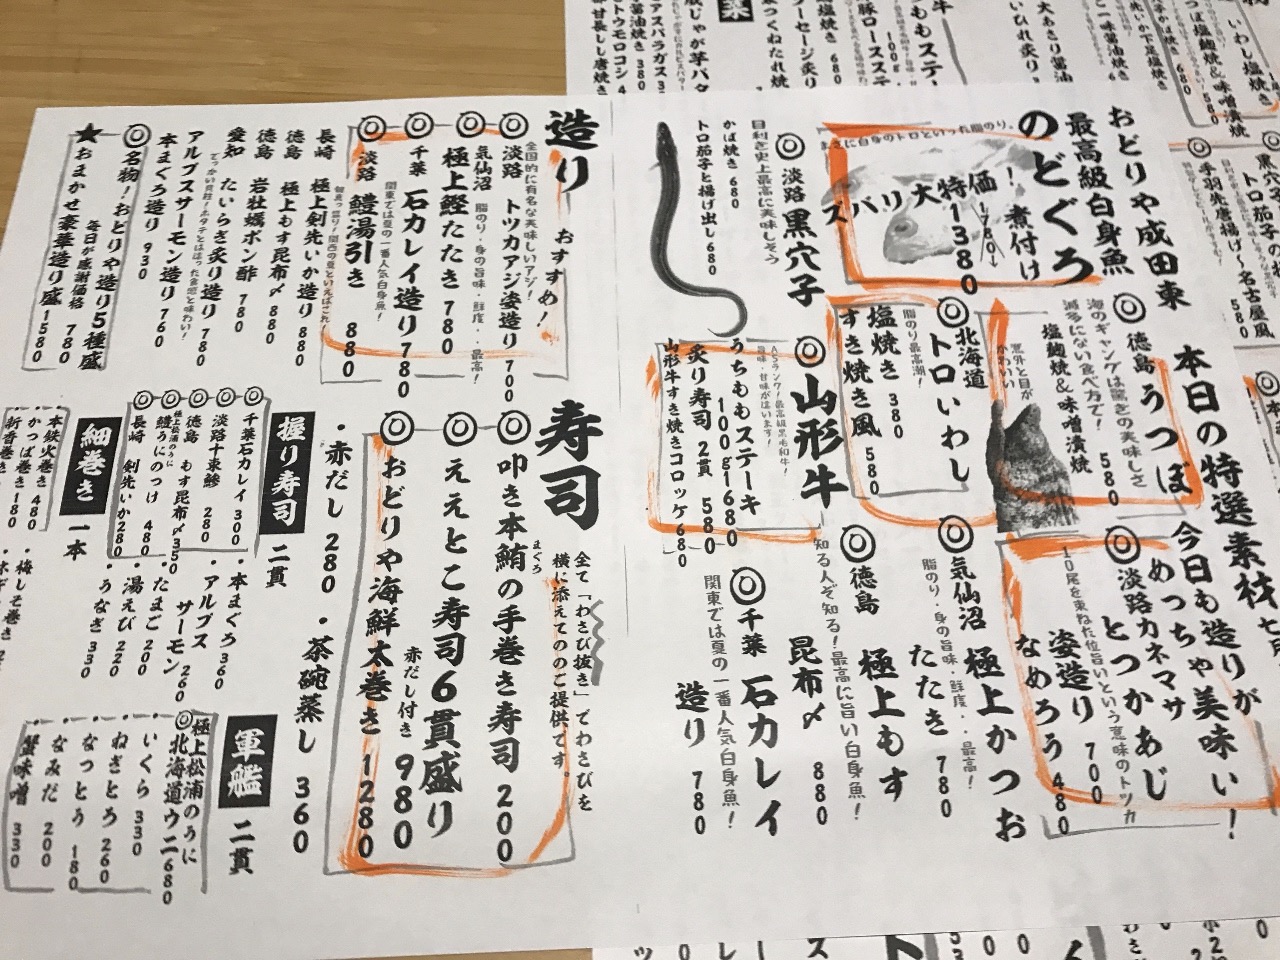 おどりや成田東
本日の特選素材
今日も造りが
めっちゃ美味い！
最高級白身魚
のどぐろ
！煮付け
特価
1780
大特1380
ズバリ
まさに白身のトロといった脂のり。
◎徳島うつぼ
海のギャングは驚きの美味しさ
滅多にない食べ方で！
塩麹焼&味噌漬焼 580
意外と目が
かわいい
◎淡路カネマサ
とつかあじ
10尾を束ねた位旨いという意味のトツカ
姿造り 700
なめろう 480
◎北海道
トロいわし
脂のり最高潮！
塩焼き 380
すき焼き風 580
◎気仙沼
極上かつお
脂のり・身の旨味・鮮度・最高！
たたき 780
◎徳島
極上もす
知る人ぞ知る！最高に旨い白身魚！
昆布〆 880
◎千葉
石カレイ
関東では夏の一番人気白身魚！
造り 780
◎淡路黒穴子
目利き史上最高に美味しそう
かば焼き 680
トロ茄子と揚げ出し 680
◎山形牛
A5ランク！最高級黒毛和牛！
旨味・甘味が違います！
うちももステーキ
100g1680
炙り寿司 2貫 580
山形牛すき焼きコロッケ 680
造り おすすめ！
全国的に有名な美味しいアジ！
◎淡路 トツカアジ姿造り 700
◎気仙沼 脂のり・身の旨味・鮮度・最高！
極上鰹たたき 780
◎千葉 石カレイ造り 780
関東では夏の一番人気白身魚！
◎淡路 鱧湯引き 880
長崎 極上剣先いか造り 880
徳島 極上もす昆布〆 880
徳島 岩牡蠣ポン酢 780
愛知 たいらぎ炙り造り 780
アルプスサーモン造り 760
本まぐろ造り 930
◎名物！おどりや造り5種盛
毎日が感謝価格 780
★おまかせ豪華造り盛 1580
寿司
全て「わさび抜き」でわさびを
横に添えてのご提供です。
まぐろ
◎叩き本鮪の手巻き寿司 200
◎ええとこ寿司6貫盛り
赤だし付き 980
◎おどりや海鮮太巻き 1280
・赤だし 280 ・茶碗蒸し 360
握り寿司 二貫
◎千葉石カレイ 300
◎淡路十束鯵 280
◎徳島 もす昆布〆 350
極上松浦のうに
◎鱧うにのっけ 480
◎長崎 剣先いか 280
・本まぐろ 360
・アルプス
サーモン 260
・たまご 200
・湯えび 220
・うなぎ 330
細巻き 一本
・本鉄火巻き 480
・かっぱ巻き 180
・新香巻き
・梅しそ巻き
軍艦 二貫
極上松浦のうに
◎北海道ウニ 680
・いくら 330
・ねぎとろ 260
・なっとう 180
・なみだ 200
・蟹味噌 330